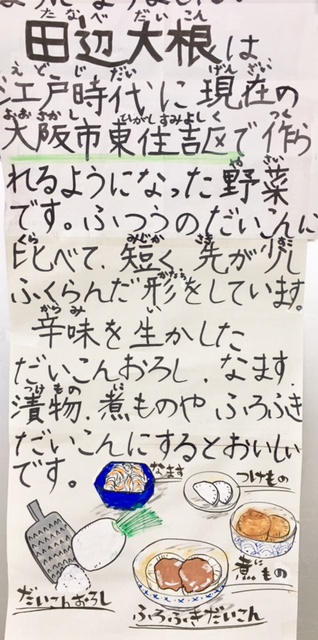 田辺大根は
江戸時代に現在の
大阪市東住吉区で作ら
れるようになった野菜
です。ふつうのだいこんに
比べて、短く、先が少し
ふくらんだ形をしています。
辛味を生かした
だいこんおろし、なます、
漬物、煮ものや ふろふき
だいこんにするとおいしい
です。
なます
つけもの
煮もの
だいこんおろし
ふろふきだいこん